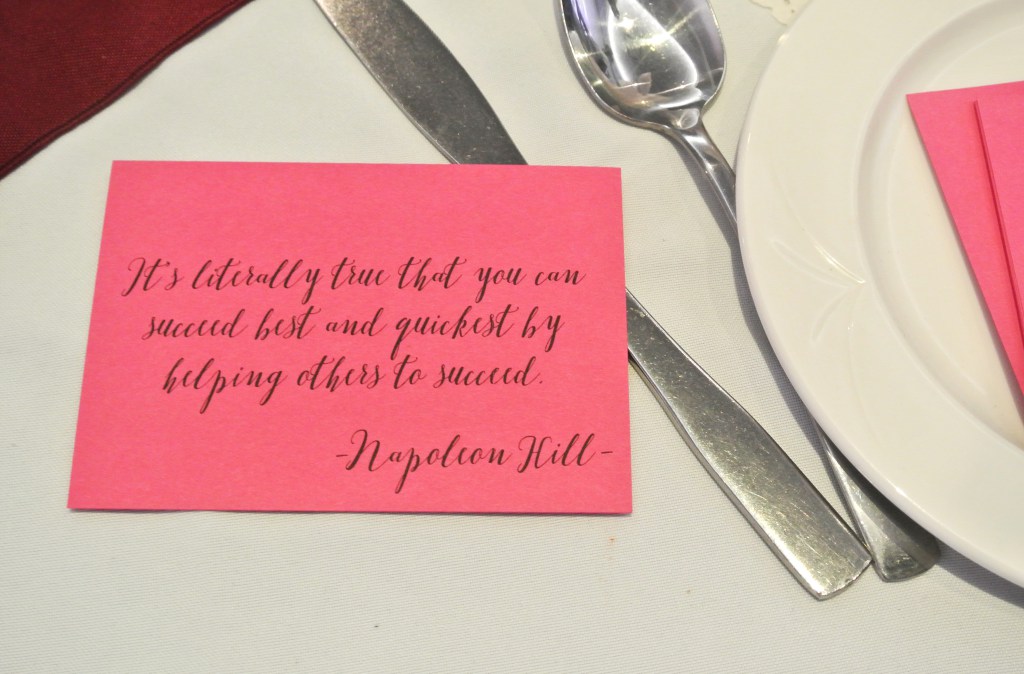 It's literally true that you can
succeed best and quickest by
helping others to succeed.
-Napoleon Hill-